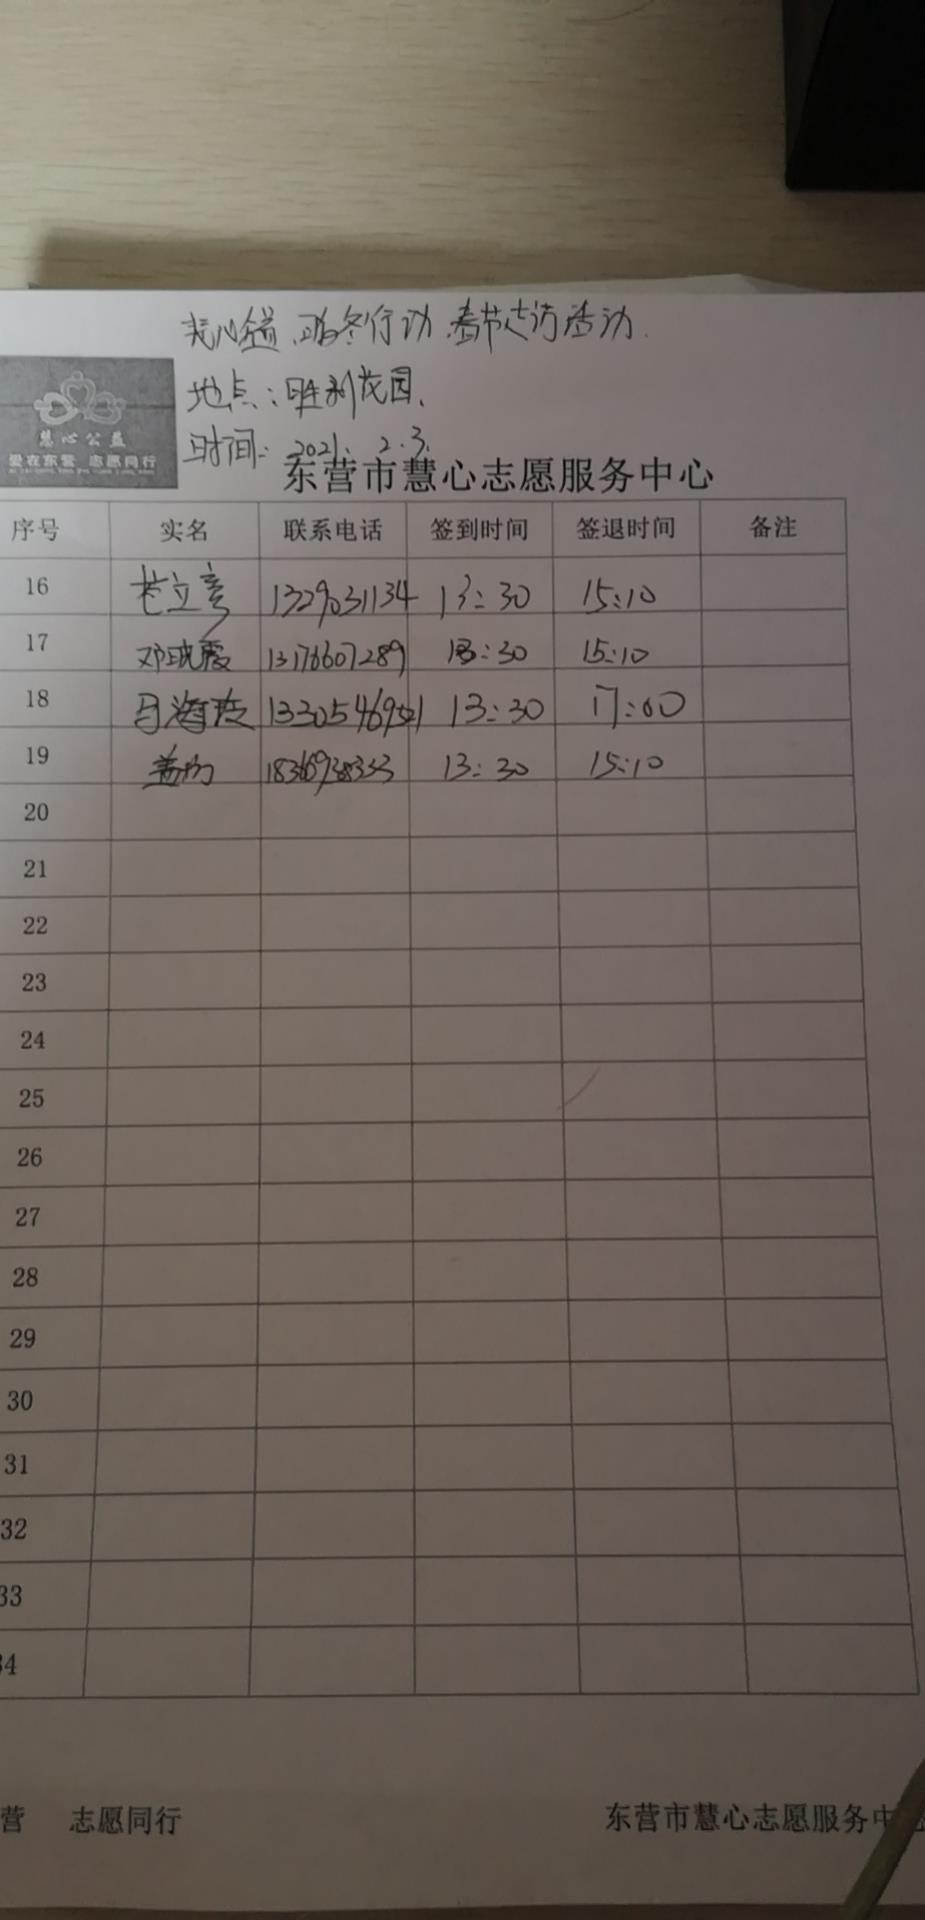 暖冬行动.春节走访活动.
地点:胜利花园.
时间:2021.2.3.
慧心公益
爱在东营 志愿同行
东营市慧心志愿服务中心
序号 实名 联系电话 签到时间 签退时间 备注
16 1329031134 13:30 15:10
17 邓晓霞 13176607289 13:30 15:10
18 马海波 13:30 17:00
19 13:30 15:10
20
21
22
23
24
25
26
27
28
29
30
31
32
33
34
营 志愿同行
东营市慧心志愿服务中心